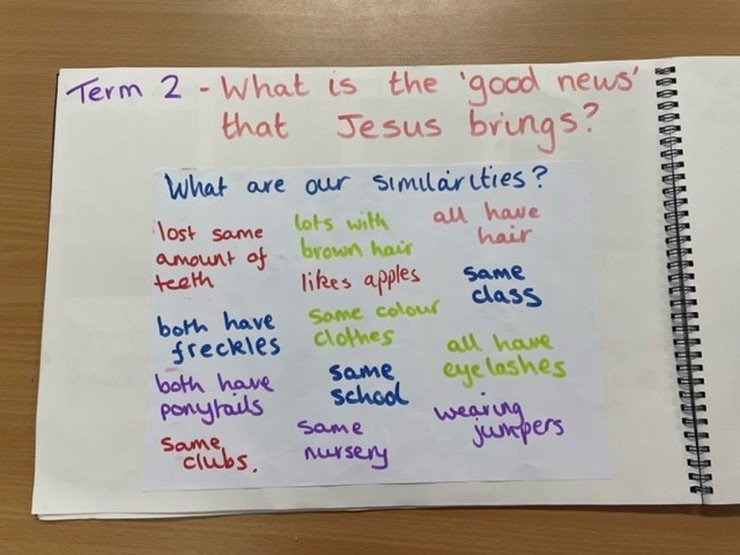 Term 2 - What is the 'good news'
that Jesus brings?
What are our similarities?
lost same
amount of
teeth
lots with
brown hair
all have
hair
likes apples
same
class
both have
freckles
same colour
clothes
all have
eyelashes
both have
ponytails
same
school
wearing
jumpers
same
clubs.
same
nursery